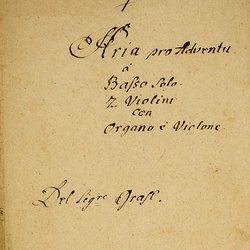 Aria pro Adventu
à
Basso Solo
2 Violini
con
Organo è Violone
Del Sigre Grasl.